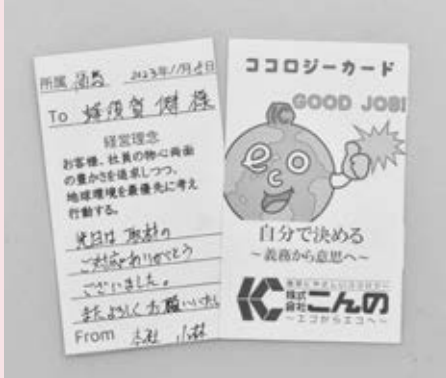 所属 福島 2023年11月 日
To 蜂須賀 様
経営理念
お客様、社員の物心両面
の豊かさを追求しつつ、
地球環境を最優先に考え
行動する。
先日は取材の
ご対応ありがとう
ございました。
またよろしくお願いいたし
From 本社 小林
ココロジーカード
GOOD JOB!
eco
自分で決める
～義務から意思へ～
株式会社こんの
～エコからエコへ～